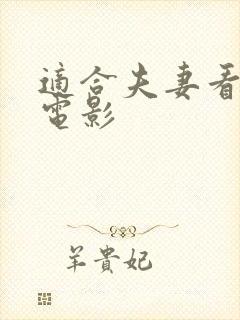 適合夫妻看
電影
羊貴妃